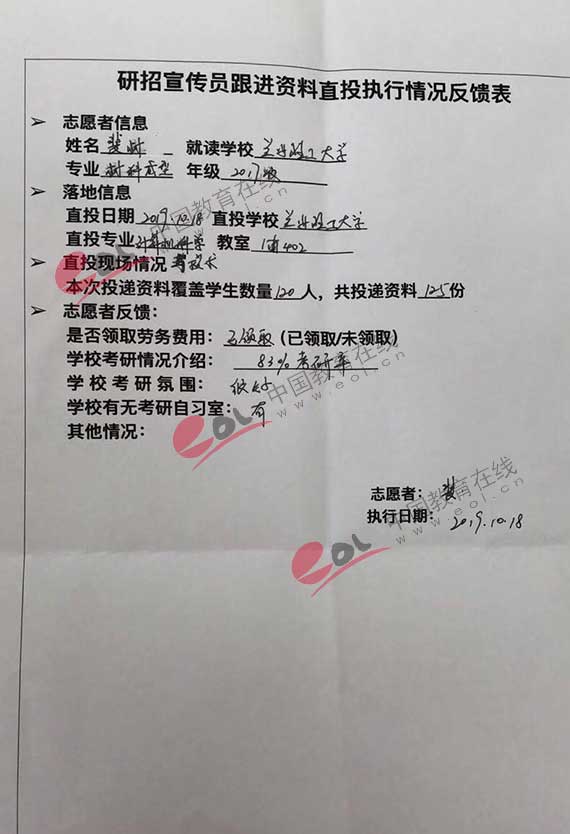 研招宣传员跟进资料直投执行情况反馈表
➢ 志愿者信息
姓名 就读学校 兰州理工大学
专业 材料成型 年级 2017级
➢ 落地信息
直投日期 2019.10.18 直投学校 兰州理工大学
直投专业 计算机科学 教室 402
➢ 直投现场情况
本次投递资料覆盖学生数量120人，共投递资料125份
➢ 志愿者反馈：
是否领取劳务费用：已领取(已领取/未领取)
学校考研情况介绍：83%考研率
学校考研氛围：很好
学校有无考研自习室：有
其他情况：
志愿者：
执行日期：2019.10.18
eol 中国教育在线
www.eol.cn
eol 中国教育在线
www.eol.cn
eol 中国教育在线
www.eol.cn